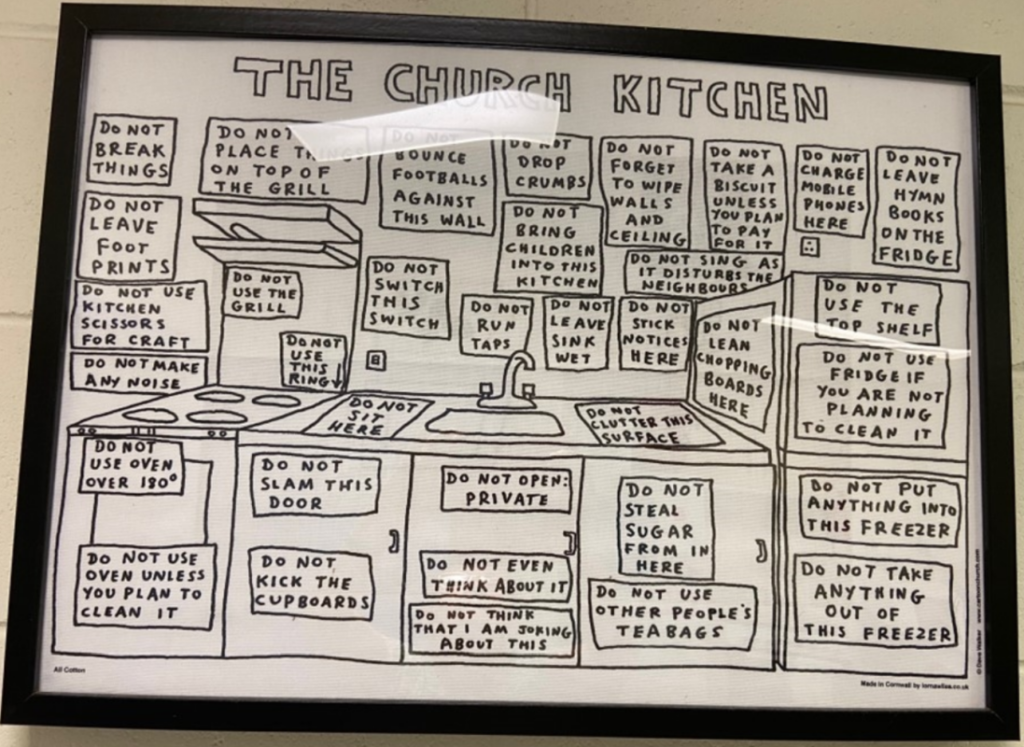 THE CHURCH KITCHEN
DO NOT
BREAK
THINGS
DO NOT
PLACE THINGS
ON TOP OF
THE GRILL
DO NOT
BOUNCE
FOOTBALLS
AGAINST
THIS WALL
DO NOT
DROP
CRUMBS
DO NOT
FORGET
TO WIPE
WALLS
AND
CEILING
DO NOT
TAKE A
BISCUIT
UNLESS
YOU PLAN
TO PAY
FOR IT
DO NOT
CHARGE
MOBILE
PHONES
HERE
DO NOT
LEAVE
HYMN
BOOKS
ON THE
FRIDGE
DO NOT
LEAVE
FOOT
PRINTS
DO NOT
BRING
CHILDREN
INTO THIS
KITCHEN
DO NOT SING AS
IT DISTURBS THE
NEIGHBOURS
DO NOT USE
KITCHEN
SCISSORS
FOR CRAFT
DO NOT
USE THE
GRILL
DO NOT
SWITCH
THIS
SWITCH
DO NOT
RUN
TAPS
DO NOT
LEAVE
SINK
WET
DO NOT
STICK
NOTICES
HERE
DO NOT
LEAN
CHOPPING
BOARDS
HERE
DO NOT
USE THE
TOP SHELF
DO NOT MAKE
ANY NOISE
DO NOT
USE
THIS
RING↓
DO NOT USE
FRIDGE IF
YOU ARE NOT
PLANNING
TO CLEAN IT
DO NOT
SIT
HERE
DO NOT
CLUTTER THIS
SURFACE
DO NOT
USE OVEN
OVER 180°
DO NOT
SLAM THIS
DOOR
DO NOT OPEN:
PRIVATE
DO NOT
STEAL
SUGAR
FROM IN
HERE
DO NOT PUT
ANYTHING INTO
THIS FREEZER
DO NOT USE
OVEN UNLESS
YOU PLAN TO
CLEAN IT
DO NOT
KICK THE
CUPBOARDS
DO NOT EVEN
THINK ABOUT IT
DO NOT THINK
THAT I AM JOKING
ABOUT THIS
DO NOT USE
OTHER PEOPLE'S
TEABAGS
DO NOT TAKE
ANYTHING
OUT OF
THIS FREEZER
All Cotton
Made in Cornwall by
© Dave Walker www.cartoonchurch.com